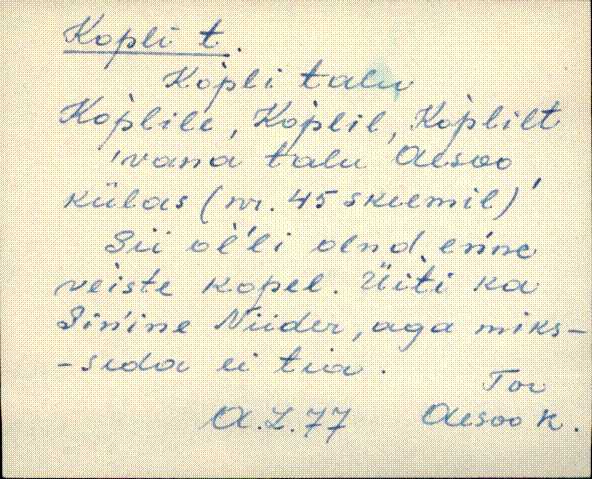 Kopli t.
Ko`pli talu
Ko`plile, Ko`plil, Ko`plilt
'vana talu Aesoo
külas (nr. 45 skeemil)'
Sii ol`li olnd en'ne
veiste kopel. Üiti ka
Sin'ine Niider, aga miks-
-seda ei tia.
Tor
A.L.77 Aesoo k.